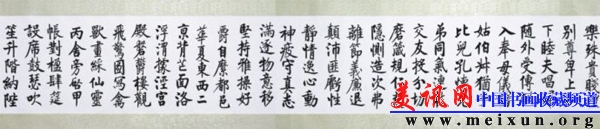 樂殊貴賤
別尊卑上
下睦夫唱
隨外受傅
入奉母儀
姑伯叔猶
比兒孔懷
弟同氣連
交友投分切
磨箴規仁慈
隱惻造次弗
離節義廉退
顛沛匪虧性
靜情逸心動
神疲守真志
滿逐物意移
堅持雅操好
爵自縻都邑
華夏東西二
京背芒面洛
浮渭據涇宮
殿盤鬱樓觀
飛驚圖寫禽
獸畫綵仙靈
丙舍旁啓甲
帳對楹肆筵
設席鼓瑟吹
笙升階納陛
美讯网
中国书画收藏频道